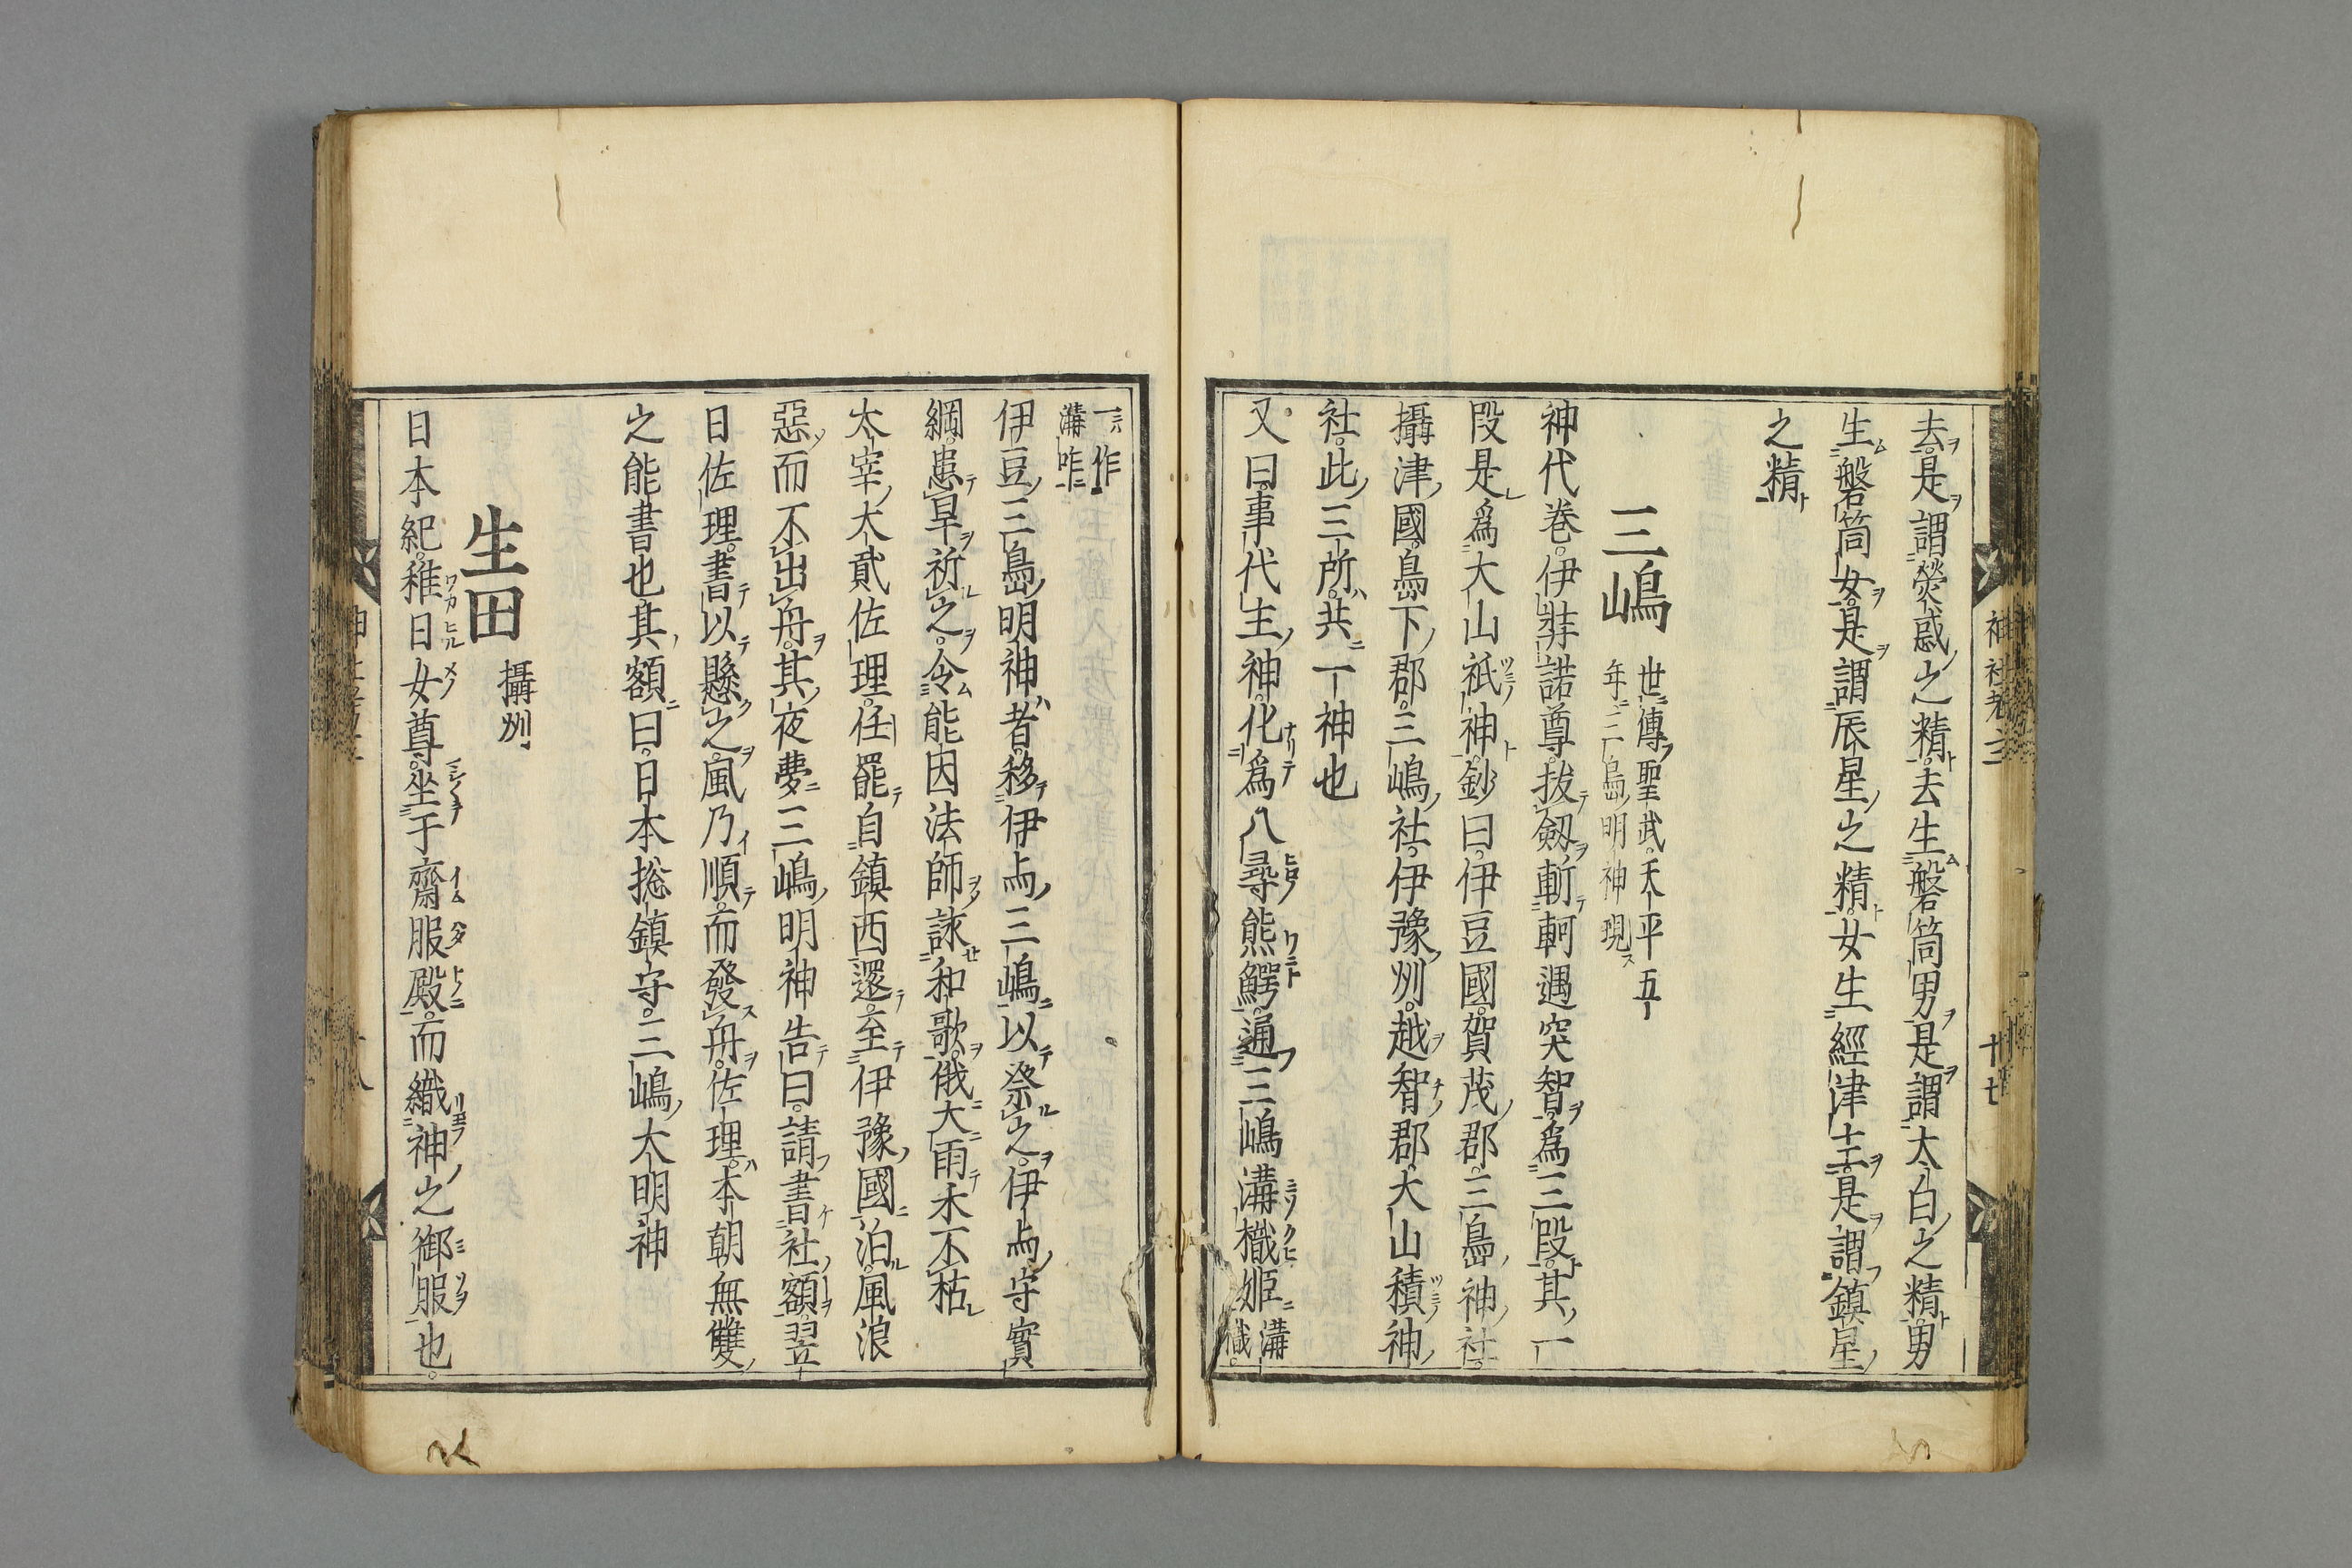 去是謂熒惑之精去生磐筒男是謂太白之精男
生磐筒女是謂辰星之精女生經津主是謂鎮星
之精
三嶋 世傳聖武天平五
年三島明神現
神代巻伊弉諾尊拔劔斬軻遇突智爲三段其一
段是爲大山祇神鈔曰伊豆國賀茂郡三島神社
攝津國島下郡三嶋社伊豫州越智郡大山積神
社此三所共一神也
又曰事代主神化爲八尋熊鰐通三嶋溝樴姬溝
樴
一作
溝咋
伊豆三島明神者移伊与三嶋以祭之伊与守實
綱患旱祈之令能因法師詠和歌俄大雨禾不枯
太宰大貳佐理任罷自鎮西還至伊豫國泊風浪
惡而不出舟其夜夢三嶋明神告曰請書社額翌
日佐理書以懸之風乃順而發舟佐理本朝無雙
之能書也其額曰日本総鎮守三嶋大明神
生田 攝州
日本紀稚日女尊坐于齋服殿而織神之御服也
神社考 三
十七